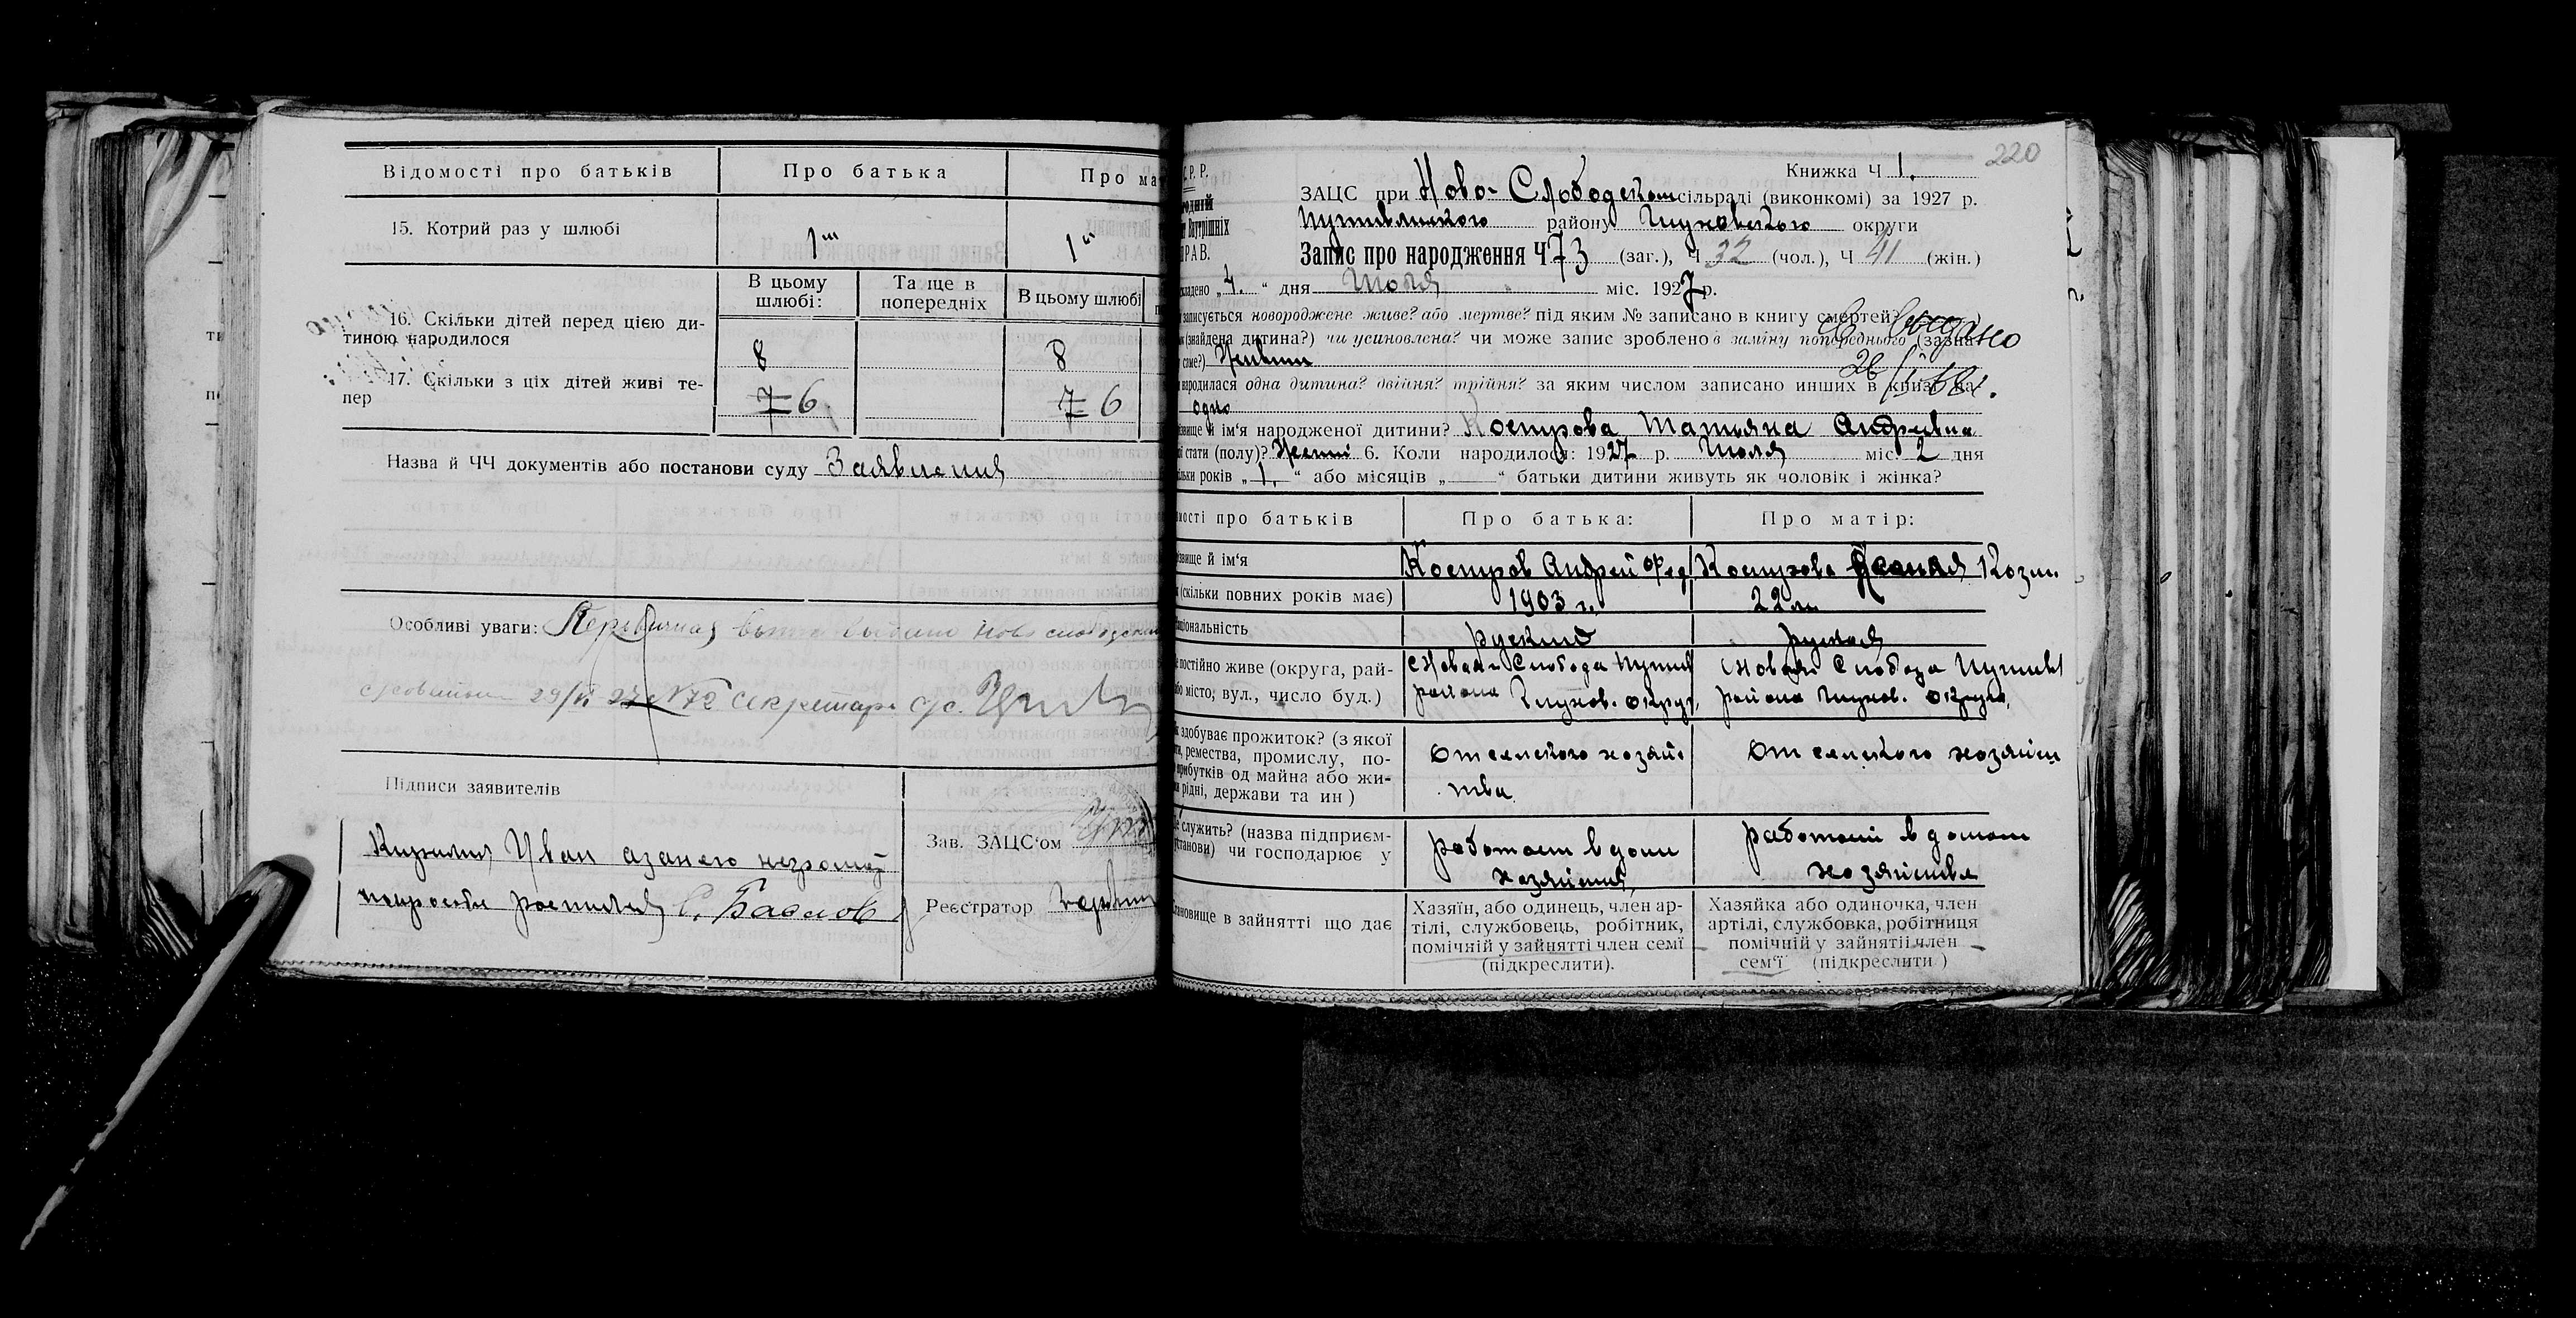 Відомості про батьків
Про батька
Про ма
15. Котрий раз у шлюбі
1ый
1ый
В цьому шлюбі:
Та ще в попередніх
В цьому шлюбі
16. Скільки дітей перед цією ди-
тиною народилося
8
8
17. Скільки з ціх дітей живі те-
пер
7 6
7 6
Назва й ЧЧ документів або постанови суду Заявления
Особливі уваги:
секретарь с/с.
Підписи заявителів
Иван
Зав. ЗАЦС'ом
Реєстратор
220
С. Р. Р.
Книжка Ч 1.
ЗАЦС при Ново-Слободском сільраді (виконкомі) за 1927 р.
Путивльского району Глуховского округи
Запис про народження Ч 73 (заг.), Ч 32 (чол.), Ч 41 (жін.)
ПРАВ.
кладено „4.“ дня Июля міс. 1927 р.
записується новороджене живе? або мертве? під яким № записано в книгу смертей?
(знайдена дитина?) чи усиновлена? чи може запис зроблено в заміну попереднього (зазна
саме?) Живым
народилася одна дитина? двійня? трійня? за яким числом записано инших в книзі на
одно
звище й ім'я народженої дитини? Кострова Татьяна Андреевна
стати (полу)? Жений 6. Коли народилося: 1927 р. Июля міс 2 дня
льки років „1.“ або місяців „ “ батьки дитини живуть як чоловік і жінка?
мості про батьків
Про батька:
Про матір:
звище й ім'я
Костров Андрей Фед
Кострова
Козм.
(скільки повних років має)
1903 г.
22 л.
ціональність
руский
руская
постійно живе (округа, рай-
бо місто, вул., число буд.)
с Новая Слобода Путив
района Глухов. округ,
с Новая Слобода Путивл
района Глухов. округа,
здобуває прожиток? (з якої
ремества, промислу, по-
рибутків од майна або жи-
рідні, держави та ин)
От селского хозяй
ства
От селского хозяйст
служить? (назва підприєм-
станови) чи господарює у
работает в дом
хозяйства,
работает в домаш
хозяйстве
ановище в зайнятті що дає
Хазяїн, або одинець, член ар-
тілі, службовець, робітник,
помічній у зайнятті член семї
(підкреслити).
Хазяйка або одиночка, член
артілі, службовка, робітниця
помічній у зайнятії член
сем'ї (підкреслити)